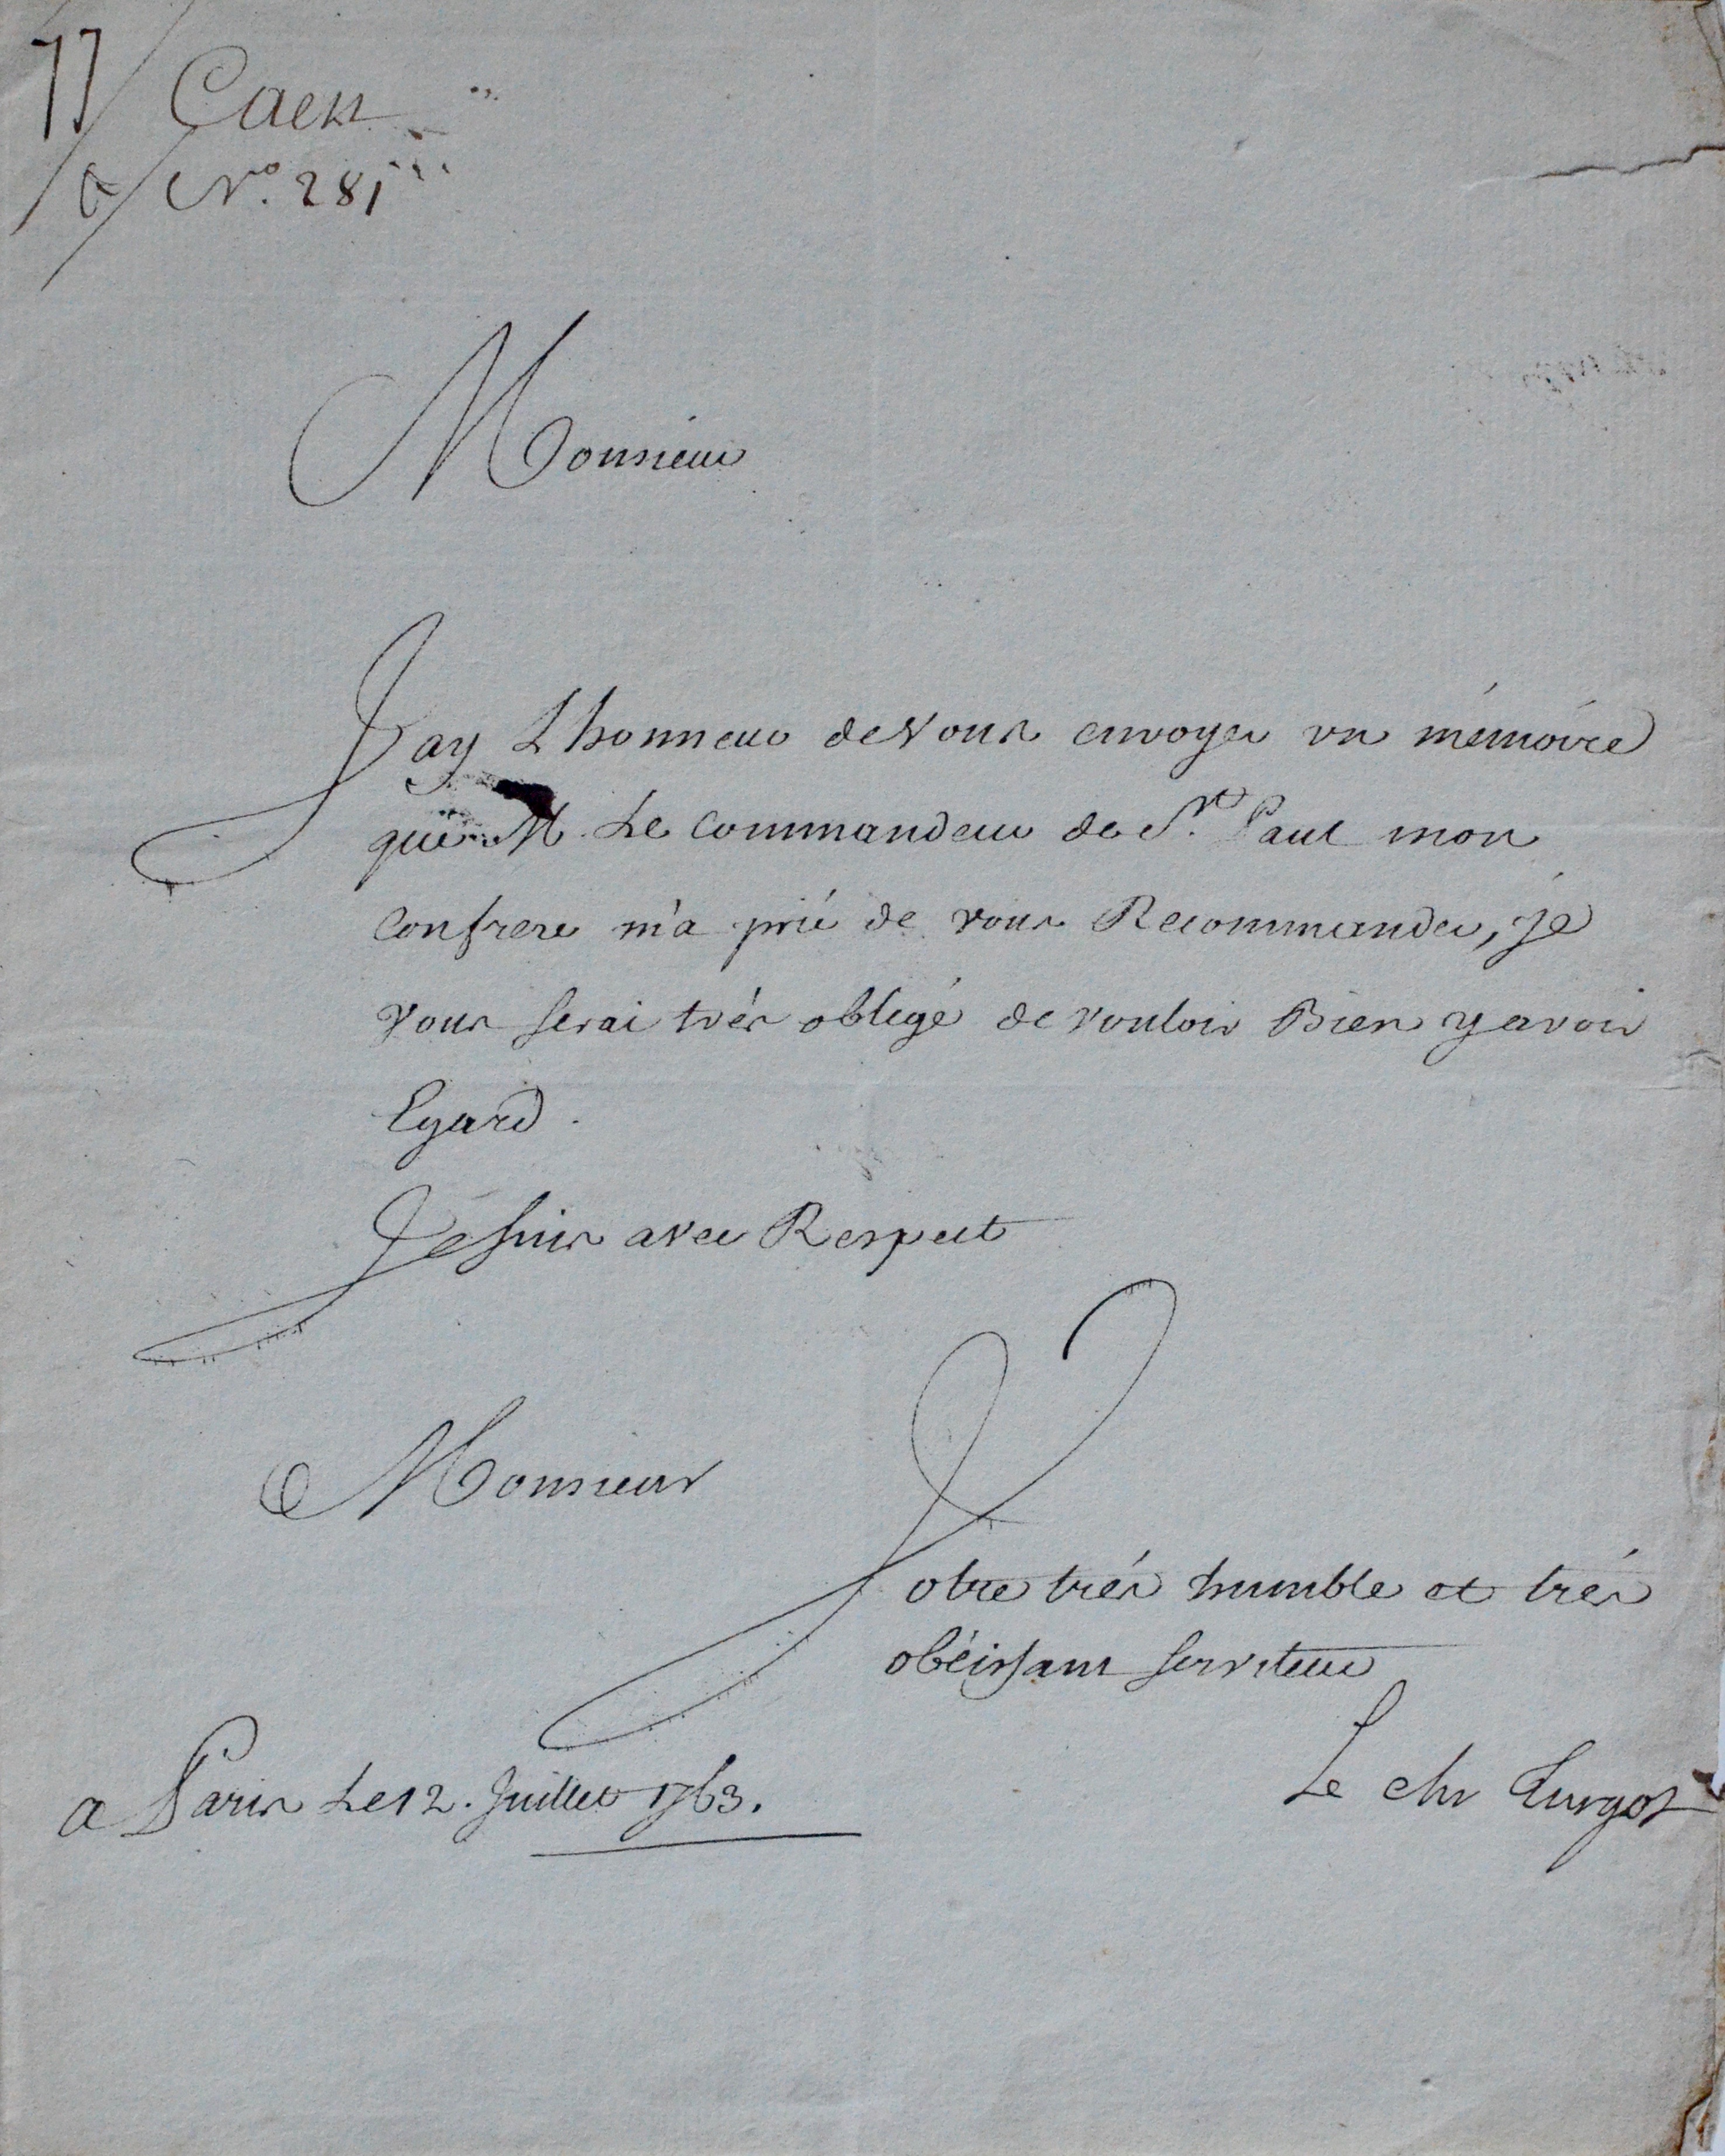 77 Caen
N.º 281
Monsieur
Jay Lhonneur de Vous envoyer un mémoire
que M. Le Commandeur de S.t Paul mon
Confrere m'a prié de vous Recommander, je
vous serai trés obligé de vouloir Bien y avoir
Egard.
Je suis avec Respect
Monsieur
Votre trés humble et trés
obéissant serviteur
Le chr Turgot
a Paris Le 12. Juillet 1763.